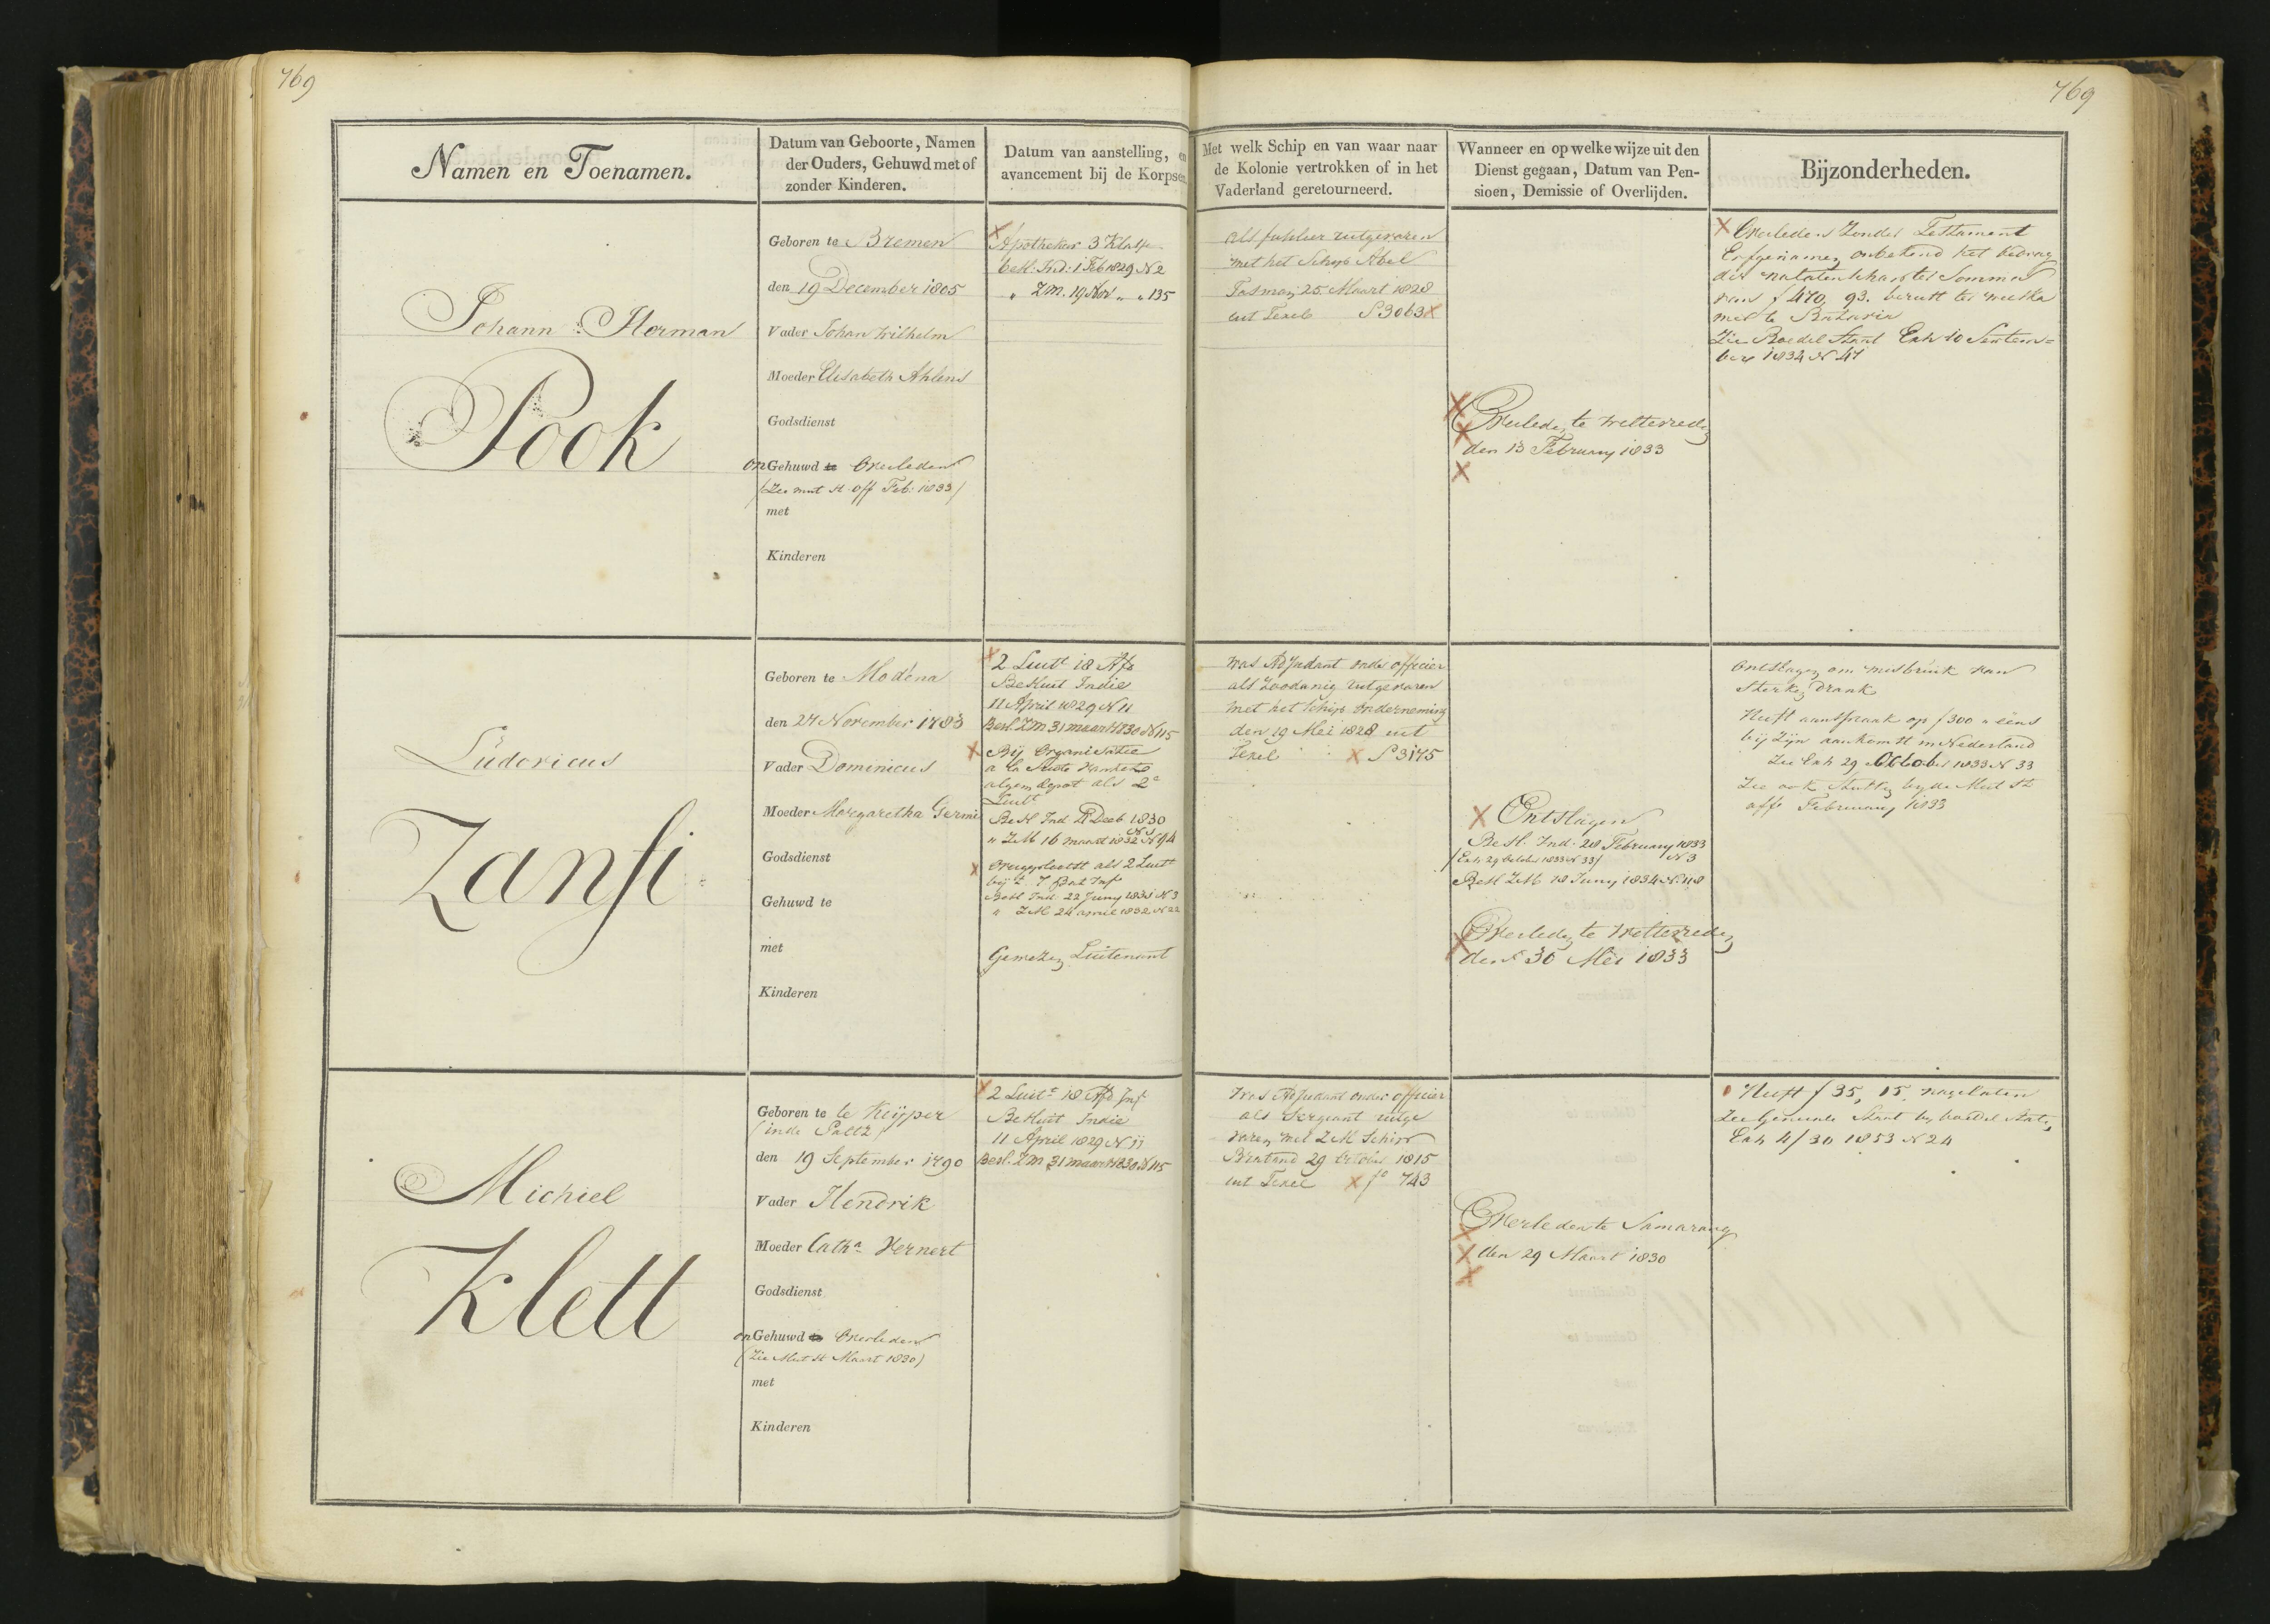 769
769
Namen en Toenamen.
Datum van Geboorte, Namen
der Ouders, Gehuwd met of
zonder Kinderen.
Datum van aanstelling, en
avancement bij de Korpsen
Met welk Schip en van waar naar
de Kolonie vertrokken of in het
Vaderland geretourneerd.
Wanneer en op welke wijze uit den
Dienst gegaan, Datum van Pen-
sioen, Demissie of Overlijden.
Bijzonderheden.
Johann Herman
Pook
Geboren te Bremen
den 19 December 1805
Vader Johan Wilhelm
Moeder Elisabeth Ahlens
Godsdienst
onGehuwd te Overleden
(Zie mut st off Feb: 1833)
met
Kinderen
Apotheker 3 Klasse
besl: Ind: 1 Feb 1829 N 2
" ZM. 19 Nov " " 135
als fuselier uitgevaren
met het Schip Abel
Tasman 25 Maart 1828
uit Texel S 3063
Overleden te Weltevreden
den 13 February 1833
Overleden Zonder Testament
Erfgenamen onbekend het bedrag
der natalenschap ter Somma
van f 470, 93. berust ter weeska
mer te Batavia
Zie Boedel Staat Exh 10 Septem=
ber 1834 N 47
Ludovicus
Zansi
Geboren te Modena
den 27 November 1783
Vader Dominicus
Moeder Margaretha Germi
Godsdienst
Gehuwd te
met
Kinderen
2 Luitt 18 Afd
Besluit Indie
11 April 1829 N 11
Besl. ZM 31 maart 1830 N 115
Bij Organisatie
a la Suite van het
algem depot als 2e
Luitt
Besl Ind Deeb 1830
" ZM 16 maart 1832 N 94
Overgeplaatst als 2 Luitt
bij t 7 Bat Inf
Besl Ind 22 Juny 1831 N 3
" ZM 24 april 1832 N 22
Gewezen Luitenant
was Adjudant onder officier
als Zoodanig uitgevaren
met het Schip Onderneming
den 19 Mei 1828 uit
Texel S 3175
Ontslagen
Besl. Ind. 28 February 1833
N 3
(Exh 29 October 1833 N 33)
Besl ZM 18 Juny 1834 N. 118
Overleden te Weltevreden
den 30 Mei 1833
Ontslagen om misbruik van
Sterken Drank
Heeft aanspraak op f 300 " eens
bij Zijn aankomst in Nederland
Zie Exh 29 October 1833 N 33
Zie ook Stukken by de Mut st
off February 1833
Michiel
Klett
Geboren te le Keijper
(in de Paltz)
den 19 September 1790
Vader Hendrik
Moeder Catha Hernert
Godsdienst
onGehuwd te Overleden
(Zie Mut st Maart 1830)
met
Kinderen
2 Luitt 18 Afd Inf
Besluit Indie
11 April 1829 N 11
Besl. ZM 31 maart 1830 N 115
Was Adjudant onder officier
als Sergeant uitge
varen met ZM Schip
Braband 29 October 1815
uit Texel fo 743
Overleden te Samarang
den 29 Maart 1830
Heeft f 35, 15, nagelaten
Zie Generale Staat by boedel Staten
Exh 4/30 1853 N 24